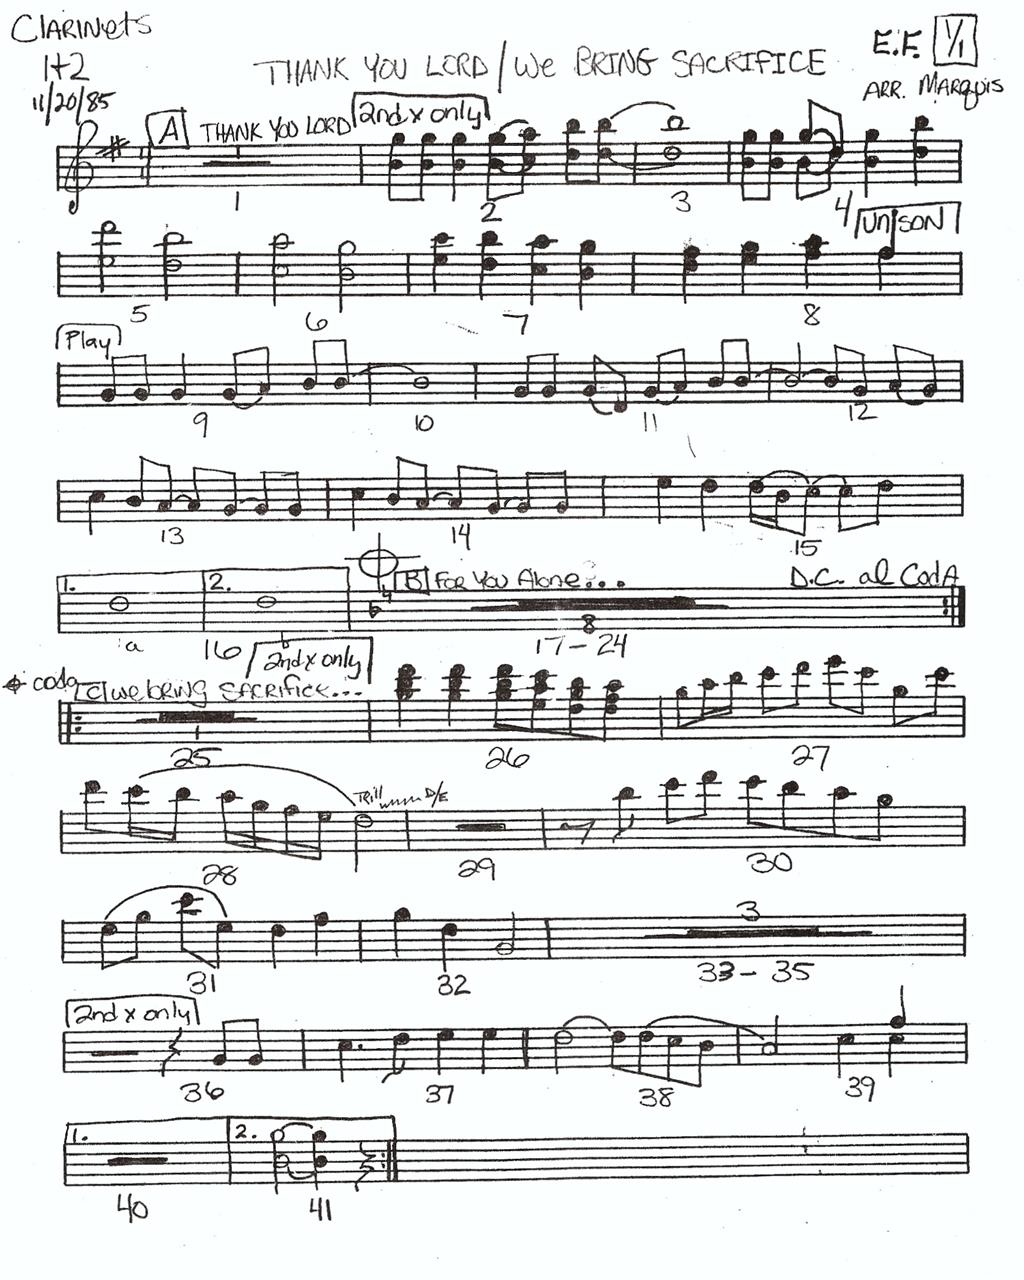 CLARINETS
1+2
11/20/85
THANK YOU LORD / We BRING SACRIFICE
E.F. 1/1
ARR. MARQUIS
A THANK YOU LORD 2nd x only
1 2 3 4
UNISON
5 6 7 8
Play
9 10 11 12
13 14 15
1. 2. B FOR YOU ALONE... D.C. al CodA
a 16 b 8 17-24
coda C we bring SACRIFICE... 2nd x only
1
25 26 27
Trill D/E
28 29 30
3
31 32 33-35
2nd x only
36 37 38 39
1. 2.
40 41